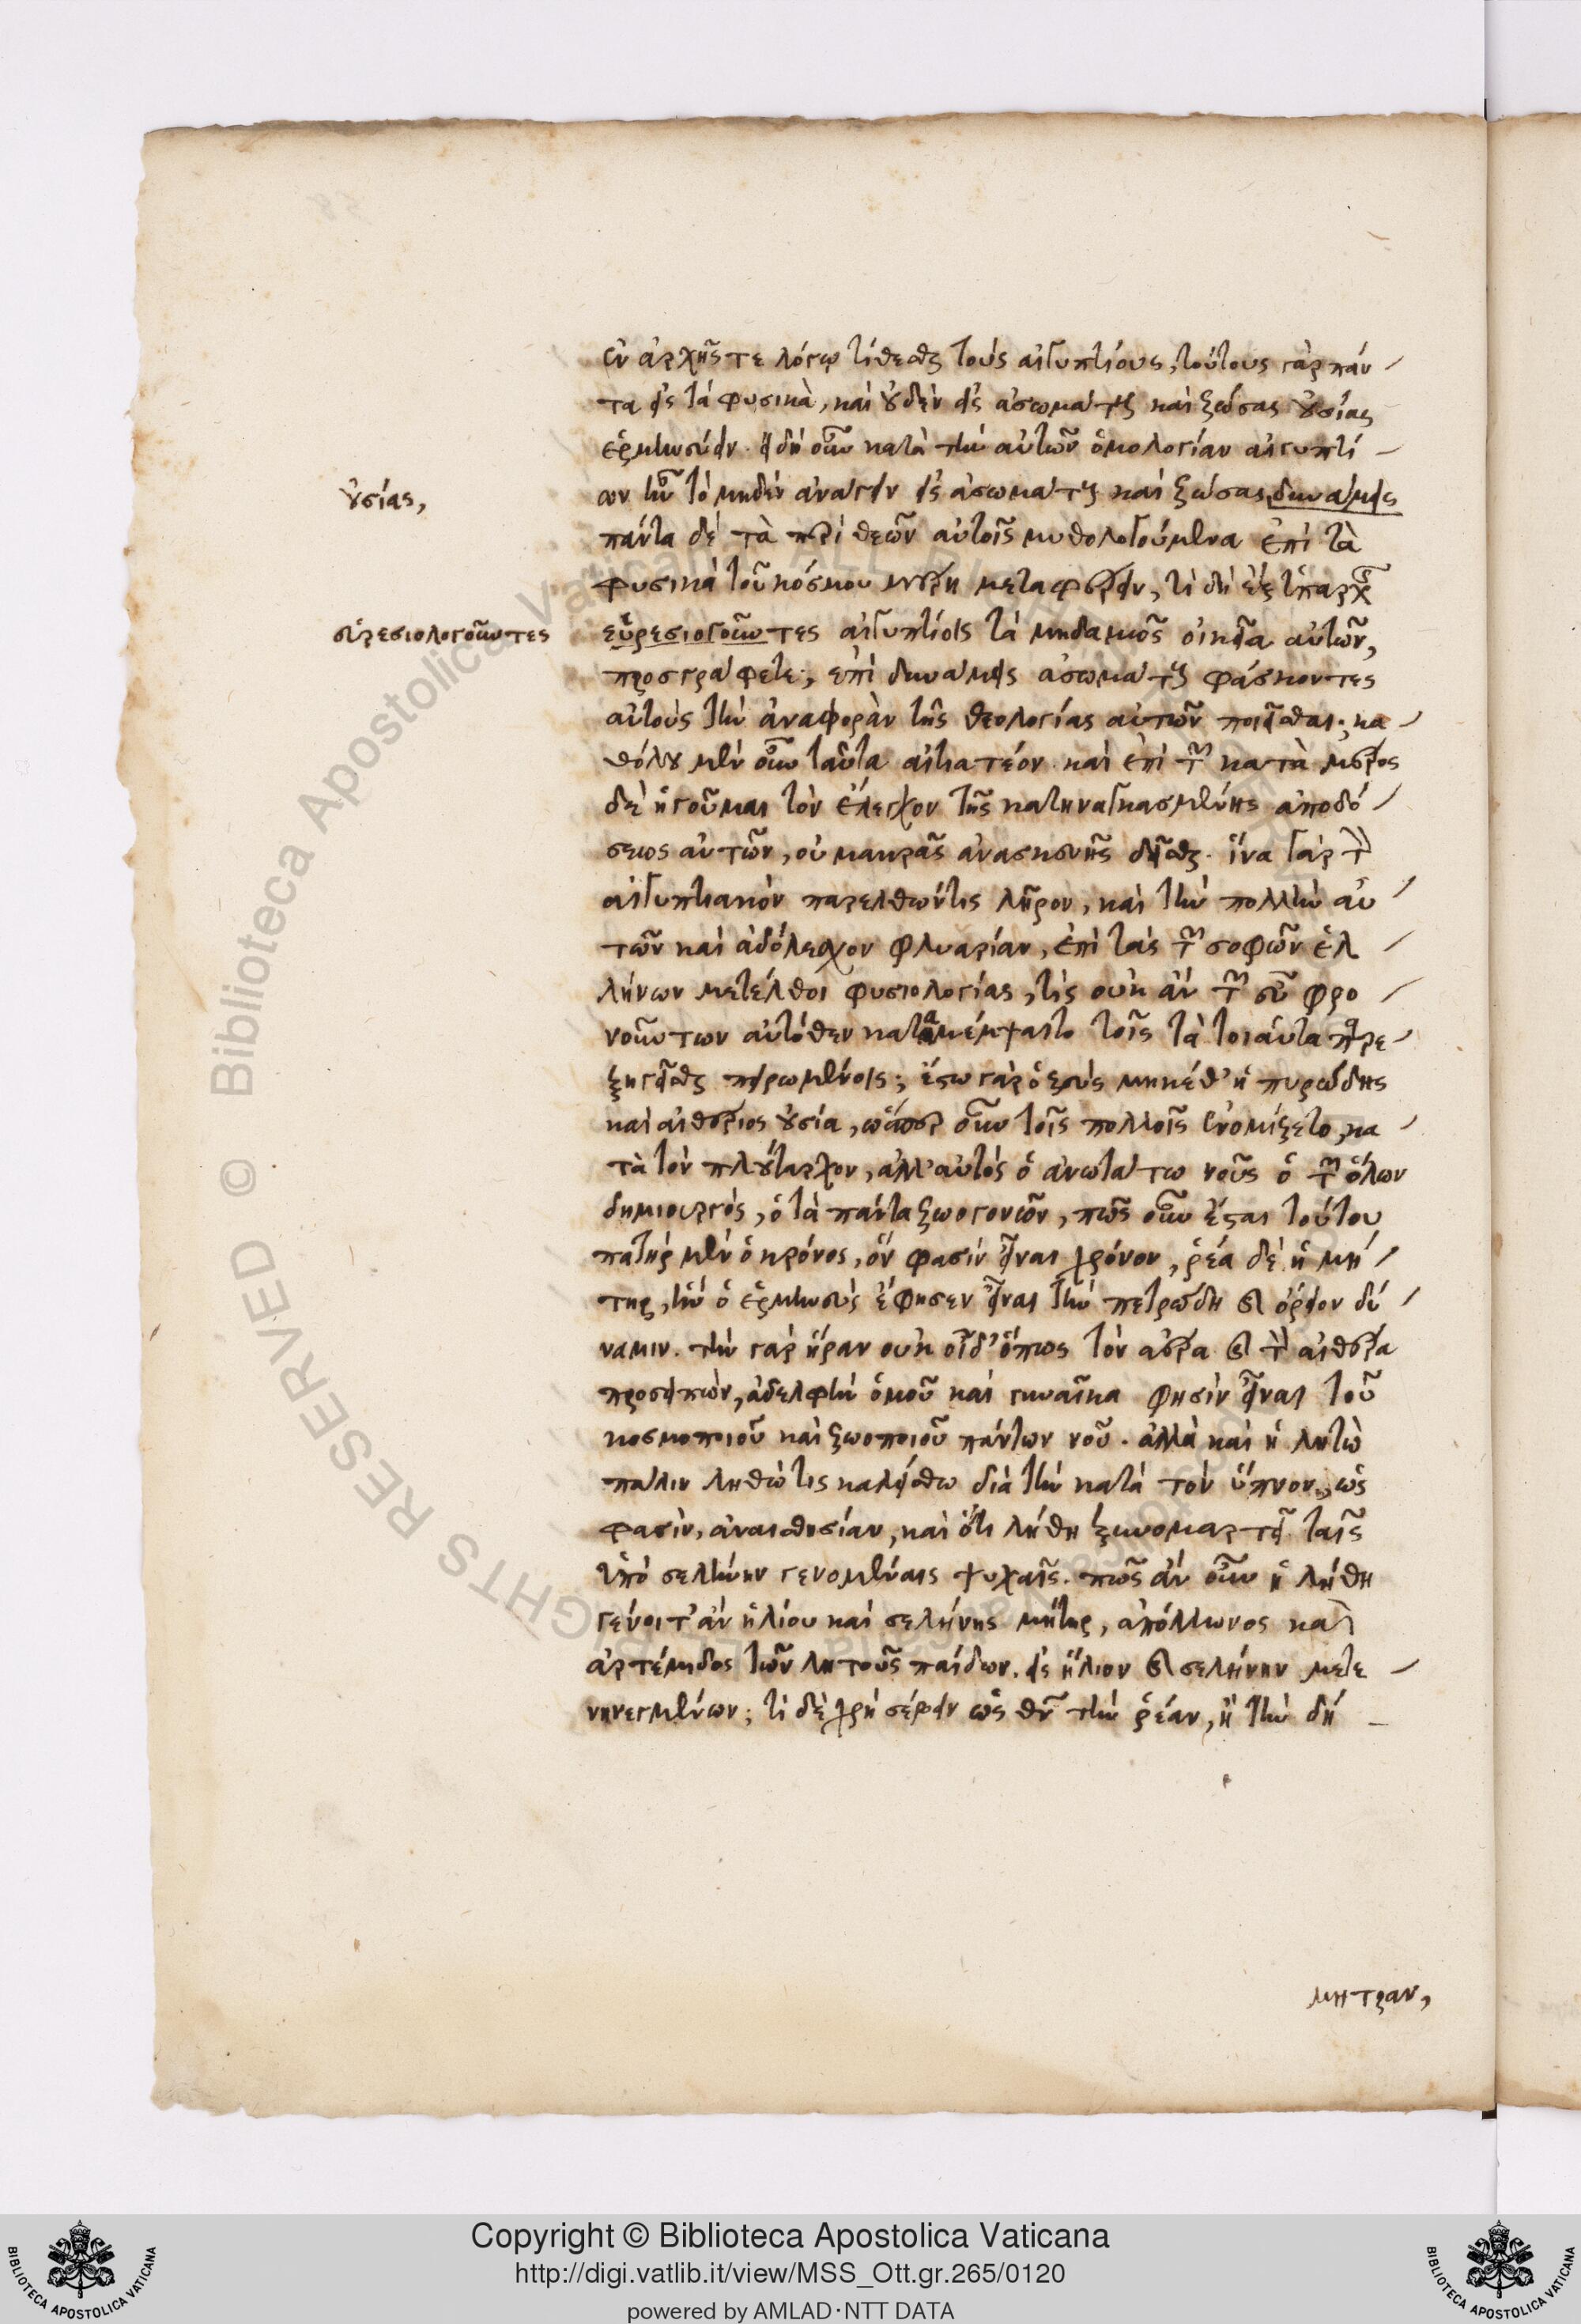 ἐν ἀρχῆς τε λόγῳ τίθεσθαι τοὺς αἰγυπτίους, τούτους γὰρ πάν
τα εἰς τὰ φυσικὰ, καὶ οὐδὲν εἰς ἀσωμάτους καὶ ζώσας οὐσίας
ἑρμηνεύειν. εἰ δὴ οὖν κατὰ τὴν αὐτῶν ὁμολογίαν αἰγυπτί
οὐσίας,
ων ἦν τὸ μηδὲν ἀνάγειν εἰς ἀσωμάτους καὶ ζώσας δυνάμεις
πάντα δὲ τὰ περὶ θεῶν αὐτοῖς μυθολογούμενα ἐπὶ τὰ
φυσικὰ τοῦ κόσμου μέρη μεταφέρειν, τί δὴ ἐξ ὑπαρχῆς
εὑρεσιολογοῦντες
εὑρεσιογοῦντες αἰγυπτίοις τὰ μηδαμῶς οἰκεῖα αὐτῶν,
προσγράφετε, ἐπὶ δυνάμεις ἀσωμάτους φάσκοντες
αὐτοὺς τὴν ἀναφορὰν τῆς θεολογίας αὐτῶν ποιεῖσθαι; κα
θόλου μὲν οὖν ταῦτα αἰτιατέον. καὶ ἐπὶ τῶν κατὰ μέρος
δὲ ἡγοῦμαι τὸν ἔλεγχον τῆς κατηναγκασμένης ἀποδό
σεως αὐτῶν, οὐ μακρᾶς ἀνασκευῆς δεῖσθαι. ἵνα γὰρ τὸν
αἰγυπτιακὸν παρελθών τις λῆρον, καὶ τὴν πολλὴν αὐ
τῶν καὶ ἀδόλεσχον φλυαρίαν, ἐπὶ τὰς τῶν σοφῶν ἑλ
λήνων μετέλθοι φυσιολογίας, τίς οὐκ ἂν τῶν εὖ φρο
νούντων αὐτόθεν καταμέμψαιτο τοῖς τὰ τοιαῦτα παρε
ξηγεῖσθαι πειρωμένοις; ἔστω γὰρ ὁ ζεὺς μηκέθ' ἡ πυρώδης
καὶ αἰθέριος οὐσία, ὥσπερ οὖν τοῖς πολλοῖς ἐνομίζετο, κα
τὰ τὸν πλούταρχον, ἀλλ' αὐτὸς ὁ ἀνωτάτω νοῦς ὁ τῶν ὅλων
δημιουργός, ὁ τὰ πάντα ζωογονῶν, πῶς οὖν ἔσται τούτου
πατὴρ μὲν ὁ κρόνος, ὅν φασιν εἶναι χρόνον, ῥέα δὲ ἡ μή
τηρ, ἣν ὁ ἑρμηνεὺς ἔφησεν εἶναι τὴν πετρώδη καὶ ὄρειον δύ
ναμιν. τὴν γὰρ ἥραν οὐκ οἶδ' ὅπως τὸν ἀέρα καὶ τὸν αἰθέρα
προσειπὼν, ἀδελφὴν ὁμοῦ καὶ γυναῖκα φησὶν εἶναι τοῦ
κοσμοποιοῦ καὶ ζωοποιοῦ πάντων νοῦ. ἀλλὰ καὶ ἡ λητὼ
πάλιν ληθώ τις καλείσθω διὰ τὴν κατὰ τὸν ὕπνον, ὥς
φασιν, ἀναισθησίαν, καὶ ὅτι λήθη ξυνομαρτεῖ ταῖς
ὑπὸ σελήνην γενομέναις ψυχαῖς. πῶς ἂν οὖν ἡ λήθη
γένοιτ' ἂν ἡλίου καὶ σελήνης μήτηρ, ἀπόλλωνος καὶ
ἀρτέμιδος τῶν λητοῦς παίδων. εἰς ἥλιον καὶ σελήνην μετε
νηνεγμένων; τί δὲ χρὴ σέβειν ὡς θεὸν τὴν ῥέαν, ἢ τὴν δή
μητραν,
Copyright © Biblioteca Apostolica Vaticana
http://digi.vatlib.it/view/MSS_Ott.gr.265/0120
powered by AMLAD·NTT DATA